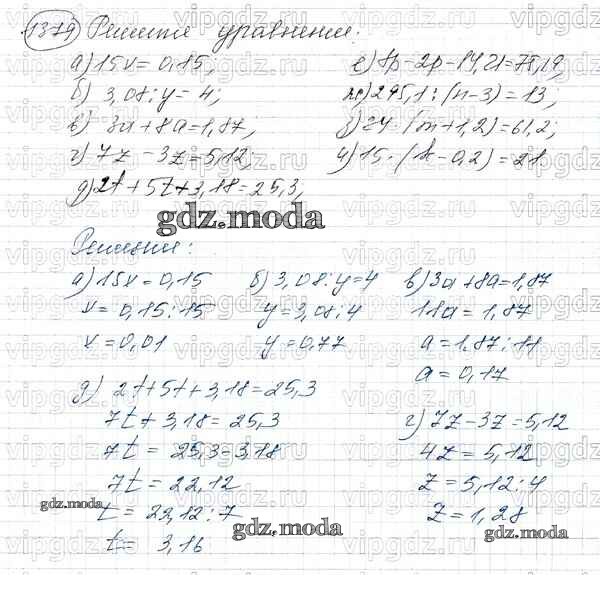 1379 Решите уравнение:
а) 15x = 0,15; е) 8p - 2p - 14,21 = 75,19;
б) 3,08 : y = 4; ж) 295,1 : (n - 3) = 13;
в) 3a + 8a = 1,87; з) 34 · (m + 1,2) = 61,2;
г) 7z - 3z = 5,12; и) 15 · (k - 0,2) = 21.
д) 2t + 5t + 3,18 = 25,3;
gdz.moda
Решение:
а) 15x = 0,15 б) 3,08 : y = 4 в) 3a + 8a = 1,87
x = 0,15 : 15 y = 3,08 : 4 11a = 1,87
x = 0,01 y = 0,77 a = 1,87 : 11
a = 0,17
д) 2t + 5t + 3,18 = 25,3
7t + 3,18 = 25,3 г) 7z - 3z = 5,12
7t = 25,3 - 3,18 4z = 5,12
7t = 22,12 z = 5,12 : 4
t = 22,12 : 7 z = 1,28
t = 3,16
gdz.moda
gdz.moda
gdz.moda